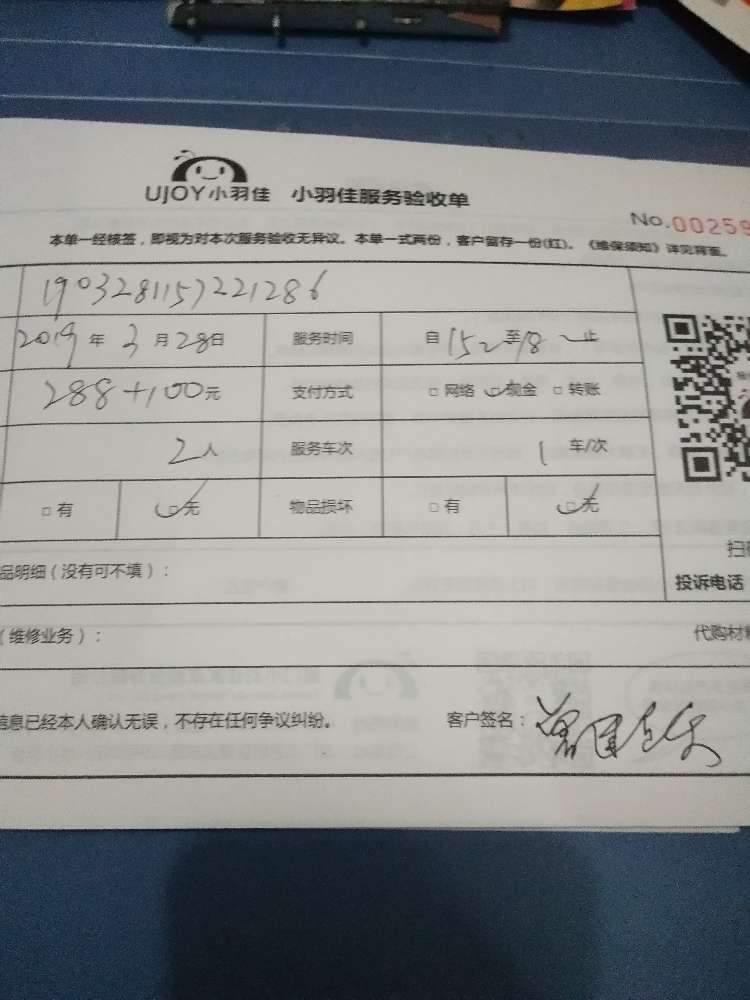 UJOY小羽佳 小羽佳服务验收单
No.00259
本单一经核签，即视为对本次服务验收无异议。本单一式两份，客户留存一份(红)。《维保须知》详见背面。
1903281157221286
2019年3月28日 服务时间 自15~至18~止
288+100元 支付方式 □网络 □现金 □转账
2人 服务车次 1车/次
□有 □无 物品损坏 □有 □无
品明细（没有可不填）： 投诉电话
（维修业务）： 代购材料
信息已经本人确认无误，不存在任何争议纠纷。 客户签名：